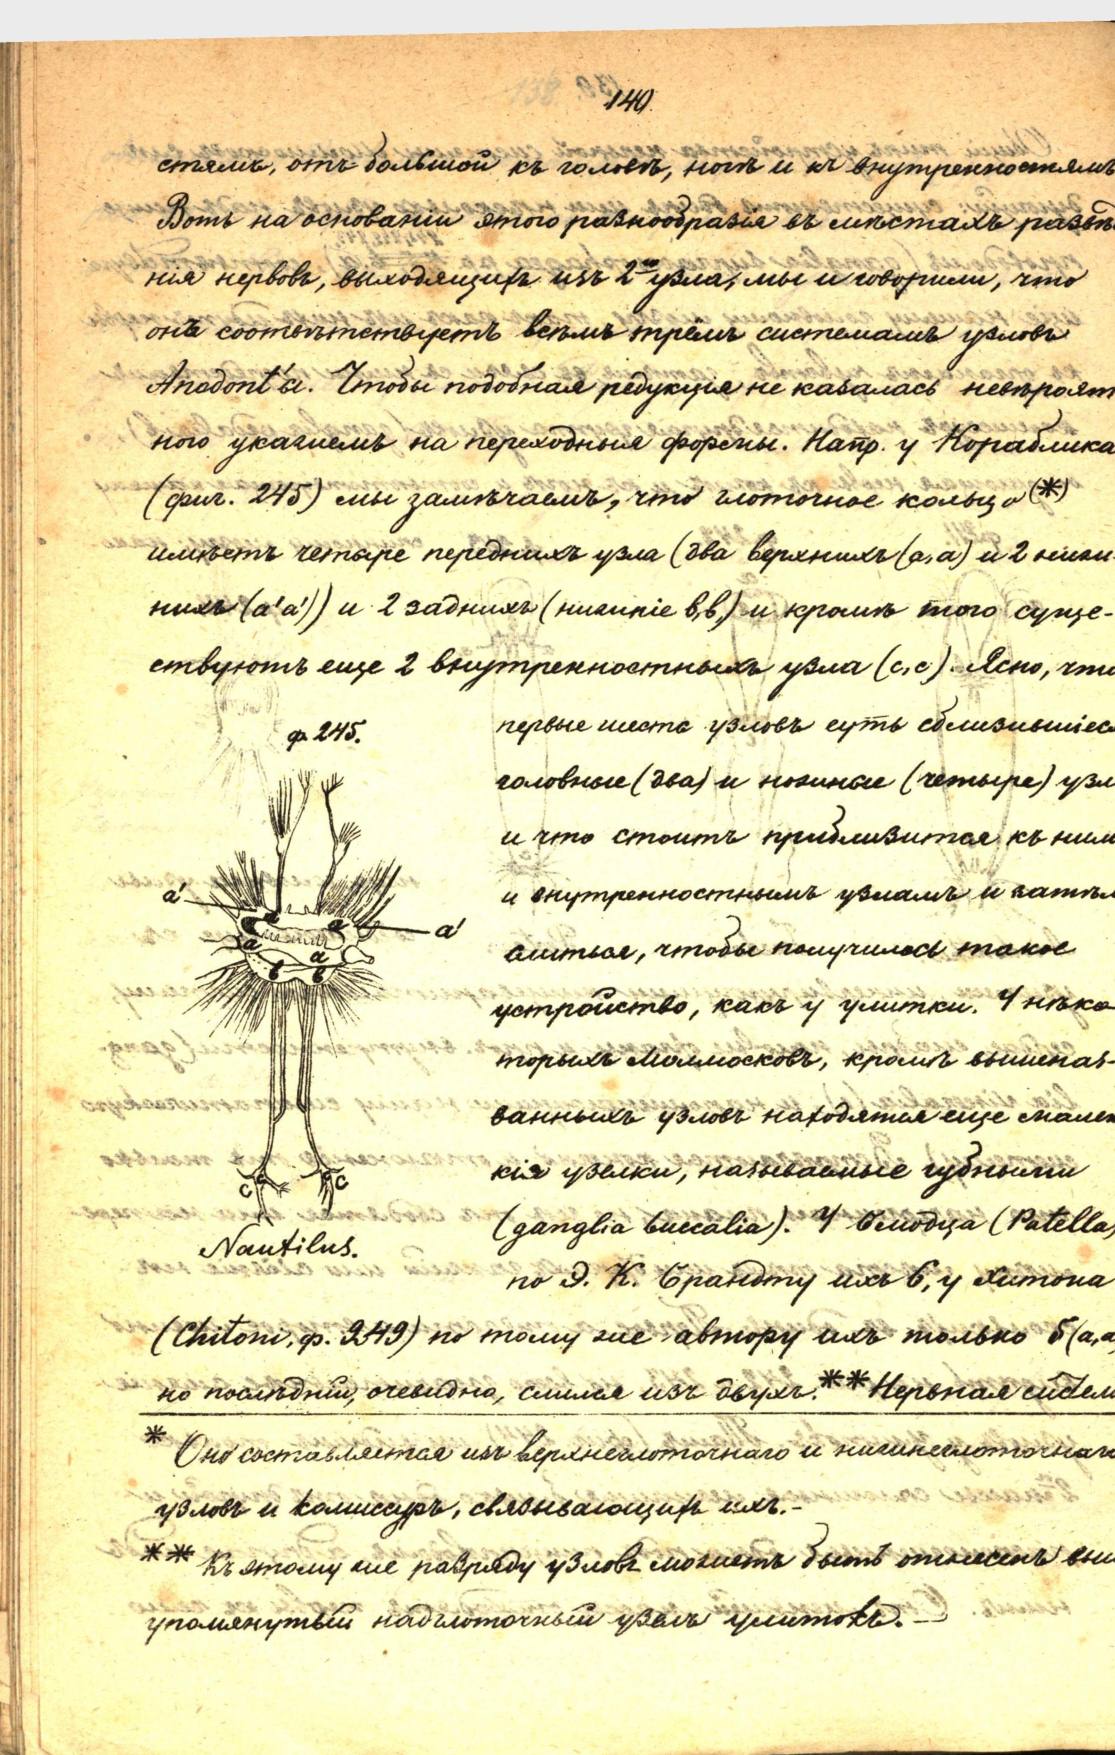 140
стямъ, отъ большой къ головѣ, ногѣ и къ внутренностямъ
Вотъ на основаніи этого разнообразія въ мѣстахъ развѣтв
нія нервовъ, выходящихъ изъ 2го узла, мы и говорили, что
онъ соотвѣтствуетъ всѣмъ тремъ системамъ узловъ
Anodont'ы. Чтобы подобная редукція не казалась невѣроят
ного укажемъ на переходныя формы. Напр. у Кораблика
(фиг. 245) мы замѣчаемъ, что глоточное кольцо (*)
имѣетъ четыре переднихъ узла (два верхнихъ (a,a) и 2 ниж-
нихъ (a'a')) и 2 заднихъ (нижніе b,b,) и кромѣ того суще-
ствуютъ еще 2 внутренностныхъ узла (c,c). Ясно, что
ф. 245.
первые шесть узловъ суть сблизившіеся
головные (два) и ножные (четыре) узл
и что стоитъ приблизится къ ним
и внутренностнымъ узламъ и затѣм
слиться, чтобы получилось такое
устройство, какъ у улитки. У нѣко-
торыхъ Моллюсковъ, кромѣ вышеназ-
ванныхъ узловъ находятся еще мален
кія узелки, называемые губными
(ganglia buccalia). У Блюдца (Patella)
по Э. К. Брандту ихъ 6, у Хитона
(Chitoni, ф. 249) по тому же автору ихъ только 5 (a,a)
но послѣдній, очевидно, слился изъ двухъ.** Нервная систем
a'
a'
a
a
a
a
b
b
c
c
Nautilus.
* Оно составляется изъ верхнеглоточнаго и нижнеглоточнаго
узловъ и комиссуръ, связывающихъ ихъ.-
** Къ этому же разряду узловъ можетъ быть отнесенъ выш
упомянутый надглоточный узелъ улитокъ. —